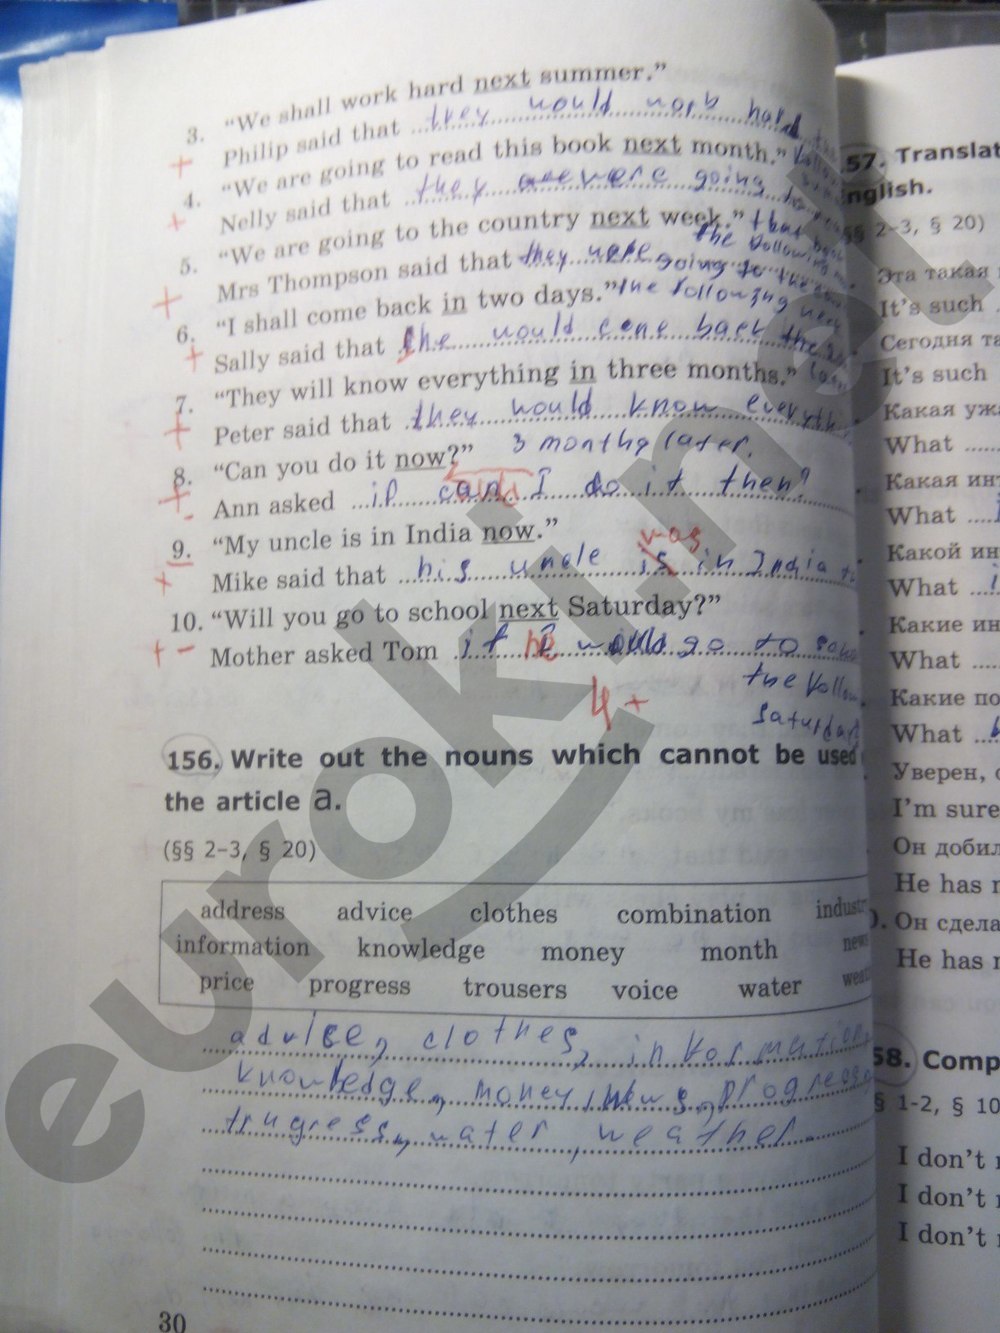 3. “We shall work hard next summer.”
Philip said that they would work hard
4. “We are going to read this book next month.”
Nelly said that they were going to
that book
5. “We are going to the country next week.”
the following
Mrs Thompson said that they were going to the
6. “I shall come back in two days.” the following
Sally said that she would come back
7. “They will know everything in three months.”
Peter said that they would know everyth
8. “Can you do it now?” 3 months later.
Ann asked if can I do it then?
9. “My uncle is in India now.” was
Mike said that his uncle is in India
10. “Will you go to school next Saturday?”
Mother asked Tom if he would go to
the follow
Saturday
4+
156. Write out the nouns which cannot be used
the article a.
(§§ 2–3, § 20)
address advice clothes combination indust
information knowledge money month news
price progress trousers voice water wea
advice, clothes, information,
knowledge, money, news, progress,
water, weather.
30
57. Translat
nglish.
§ 2–3, § 20)
Эта такая
It’s such
Сегодня та
It’s such
Какая ужа
What
Какая инт
What
Какой ин
What
Какие ин
What
Какие по
What
Уверен, с
I’m sure
Он добил
He has r
Он сдела
He has r
58. Comp
§ 1-2, § 10
I don’t r
I don’t r
I don’t r
euroki.net